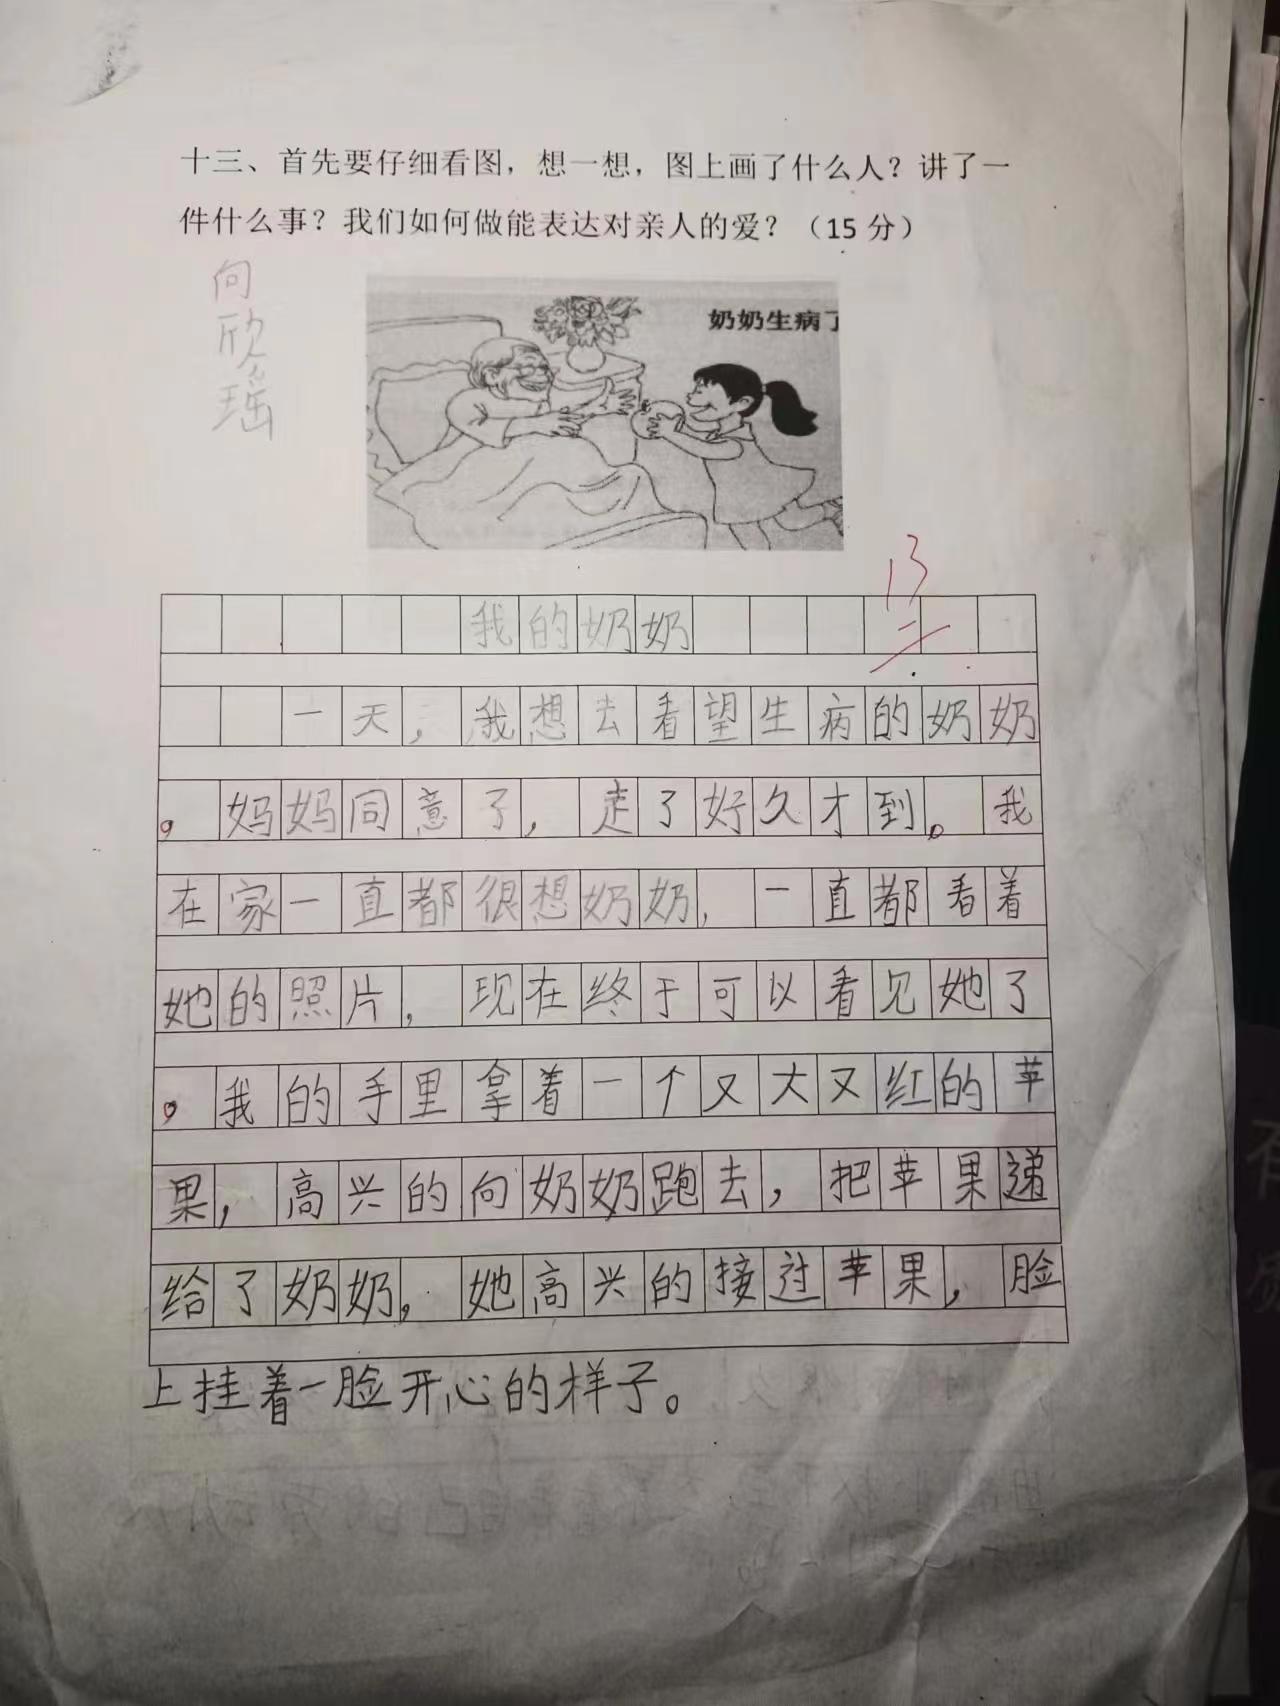 十三、首先要仔细看图，想一想，图上画了什么人？讲了一
件什么事？我们如何做能表达对亲人的爱？（15 分）
向欣瑶
奶奶生病了
13
我的奶奶
一天，我想去看望生病的奶奶
。妈妈同意了，走了好久才到。我
在家一直都很想奶奶，一直都看着
她的照片，现在终于可以看见她了
。我的手里拿着一个又大又红的苹
果，高兴的向奶奶跑去，把苹果递
给了奶奶，她高兴的接过苹果，脸
上挂着一脸开心的样子。